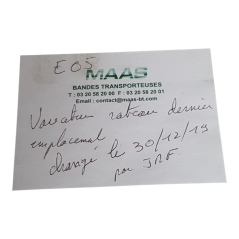 E05
MAAS
BANDES TRANSPORTEUSES
T : 03 20 58 20 00 F : 03 20 58 20 01
Email : contact@maas-bt.com
Variateur rateau dernier
emplacement
changé le 30/12/19
par JRF